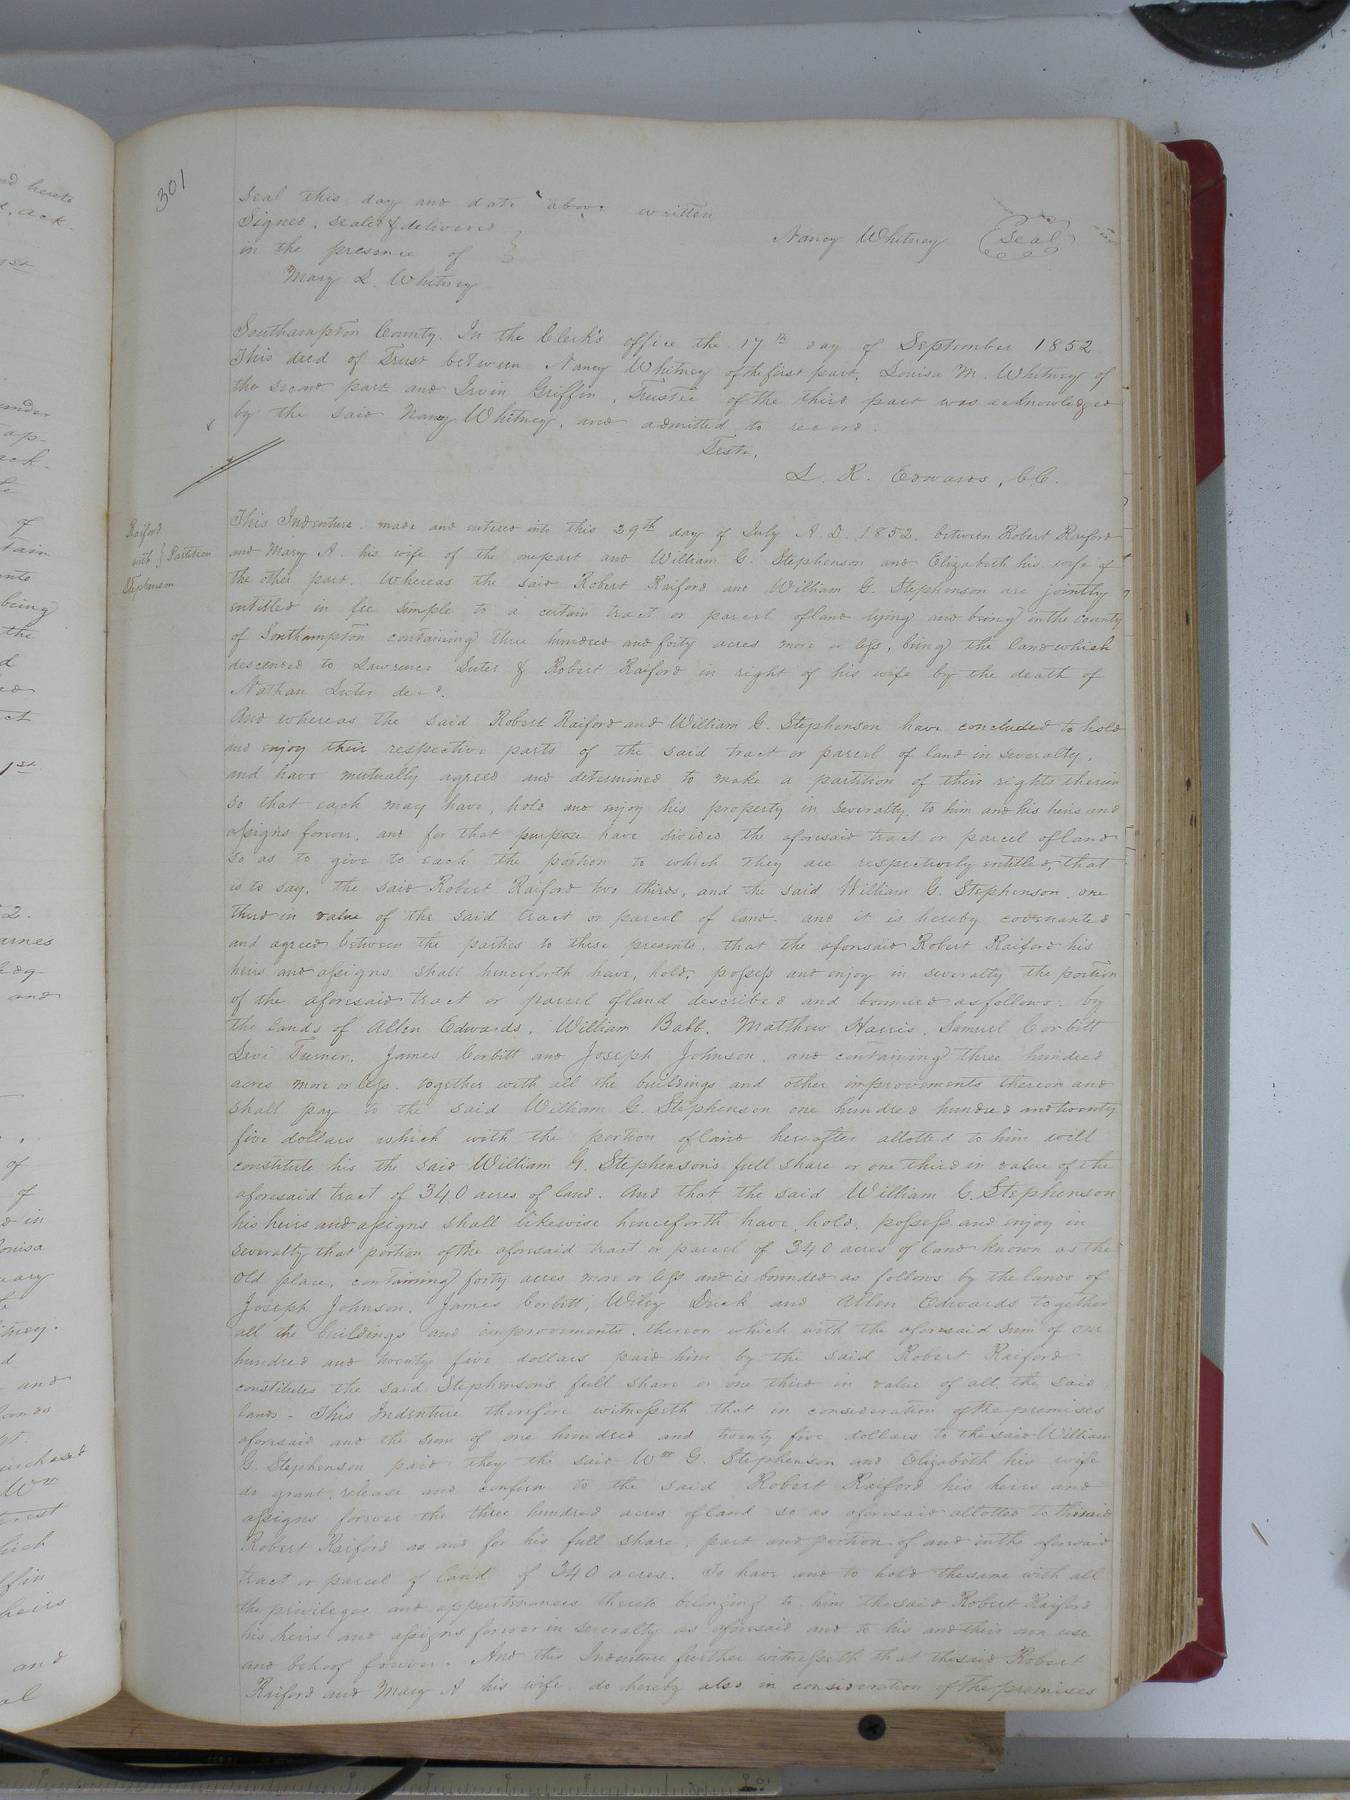 301
seal this day and date above written
Signed, sealed & delivered
in the presence of
Nancy Whitney Seal
Mary L. Whitney
Southampton County. In the Clerk's office the 17th day of September 1852
This deed of Trust between Nancy Whitney of the first part, Louisa M. Whitney of
the second part and Irvin Griffin, Trustee of the third part was acknowledged
by the said Nancy Whitney, and admitted to record.
Teste,
L. R. Edwards, CC.
Raiford
with } Partition
Stephenson
This Indenture made and entered into this 29th day of July A. D. 1852. between Robert Raiford
and Mary A. his wife of the one part and William G. Stephenson and Elizabeth his wife of
the other part. Whereas the said Robert Raiford and William G. Stephenson are jointly
entitled in fee simple to a certain tract or parcel of land lying and being in the County
of Southampton containing three hundred and forty acres more or less, being the land which
descended to Lawrence Luter & Robert Raiford in right of his wife by the death of
Nathan Luter decd.
And whereas the said Robert Raiford and William G. Stephenson have concluded to hold
and enjoy their respective parts of the said tract or parcel of land in severalty,
and have mutually agreed and determined to make a partition of their rights therein
so that each may have, hold and enjoy his property in severalty, to him and his heirs and
assigns forever, and for that purpose have divided the aforesaid tract or parcel of land
so as to give to each the portion to which they are respectively entitled, that
is to say, the said Robert Raiford two thirds, and the said William G. Stephenson, one
third in value of the said tract or parcel of land. and it is hereby covenanted
and agreed between the parties to these presents, that the aforesaid Robert Raiford his
heirs and assigns shall henceforth have, hold, possess and enjoy in severalty the portion
of the aforesaid tract or parcel of land described and bounded as follows: by
the lands of Allen Edwards, William Babb, Matthew Harris, Samuel Corbitt
Levi Turner, James Corbitt and Joseph Johnson, and containing three hundred
acres more or less. together with all the buildings and other improvements thereon and
shall pay to the said William G. Stephenson one hundred hundred and twenty
five dollars which with the portion of land hereafter allotted to him will
constitute his the said William G. Stephenson's full share or one third in value of the
aforesaid tract of 340 acres of land. And that the said William G. Stephenson
his heirs and assigns shall likewise henceforth have, hold, possess and enjoy in
severalty that portion of the aforesaid tract or parcel of 340 acres of land known as the
Old place, containing forty acres more or less and is bounded as follows by the lands of
Joseph Johnson, James Corbitt, Wiley Duck and Allen Edwards together
all the buildings and improvements thereon which with the aforesaid sum of one
hundred and twenty five dollars paid him by the said Robert Raiford
constitutes the said Stephenson's full share or one third in value of all the said
lands - This Indenture therefore witnesseth that in consideration of the premises
aforesaid and the sum of one hundred and twenty five dollars to the said William
G. Stephenson paid they the said Wm G. Stephenson and Elizabeth his wife
do grant, release and confirm to the said Robert Raiford his heirs and
assigns forever the three hundred acres of land so as aforesaid allotted to the said
Robert Raiford as and for his full share, part and portion of and in the aforesaid
tract or parcel of land of 340 acres. To have and to hold the same with all
the privileges and appurtenances thereto belonging to him the said Robert Raiford
his heirs and assigns forever in severalty as aforesaid and to his and their own use
and behoof forever. And this Indenture further witnesseth that the said Robert
Raiford and Mary A his wife do hereby also in consideration of the premises